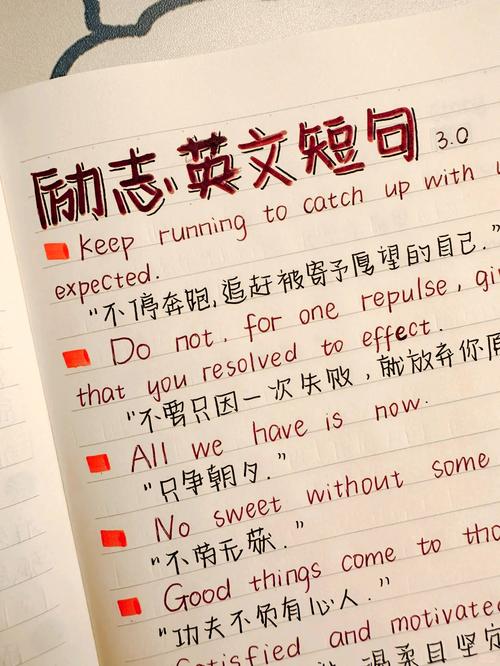 励志英文短句 3.0
Keep running to catch up with
expected.
"不停奔跑,追赶被寄予愿望的自己."
Do not, for one repulse,
that you resolved to effect.
"不要只因一次失败,就放弃你
All we have is now.
"只争朝夕."
No sweet without some
"不劳无获."
Good things come to
"功夫不负有心人."
Satisfied and motivated
温柔且坚定